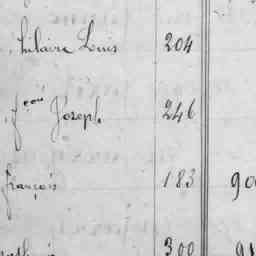 , hilaire Louis 204
, fçois Joseph 246
françois 183 90
300 91